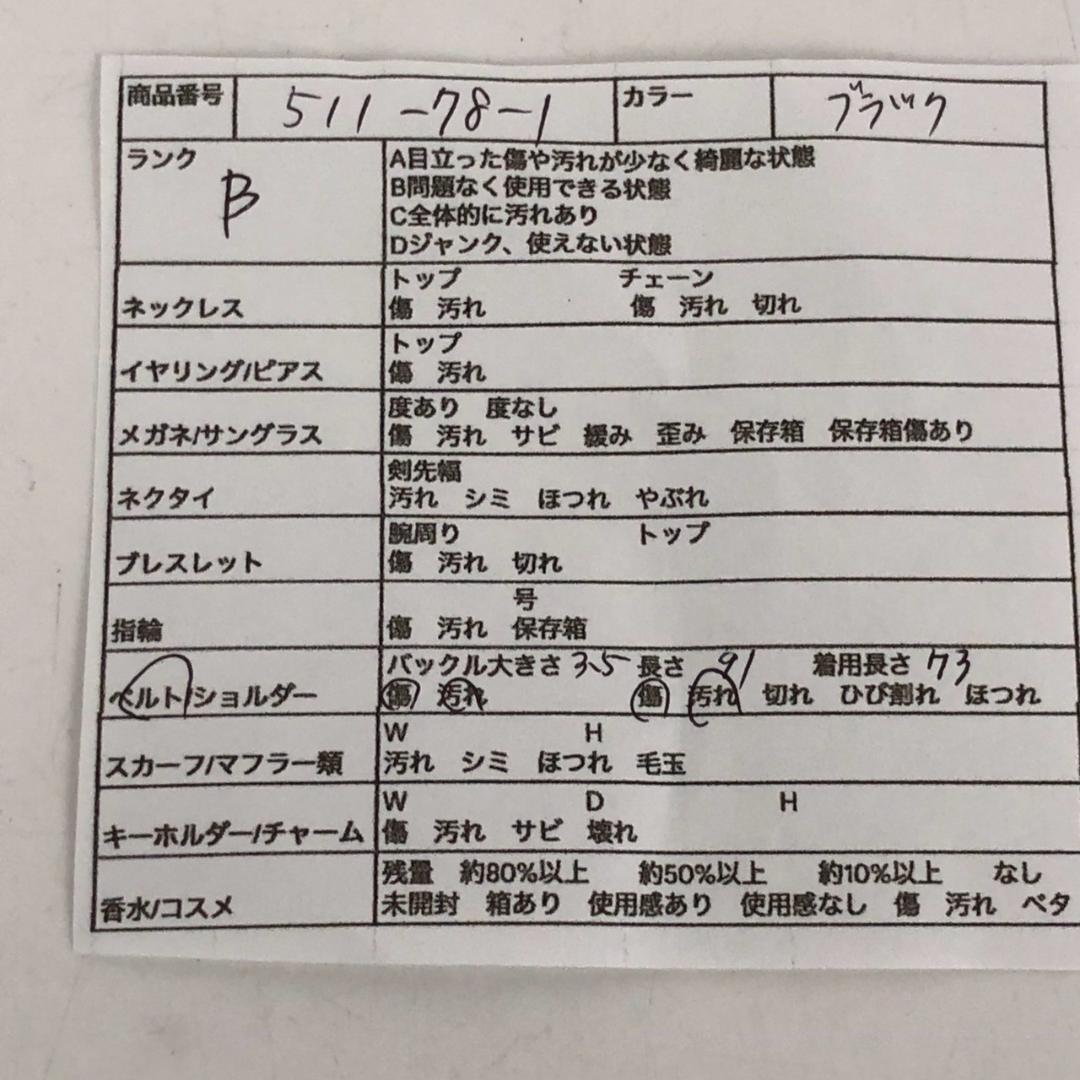 商品番号 511-78-1 カラー ブラック
ランク B
A目立った傷や汚れが少なく綺麗な状態
B問題なく使用できる状態
C全体的に汚れあり
Dジャンク、使えない状態
ネックレス
トップ チェーン
傷 汚れ 傷 汚れ 切れ
イヤリング/ピアス
トップ
傷 汚れ
メガネ/サングラス
度あり 度なし
傷 汚れ サビ 緩み 歪み 保存箱 保存箱傷あり
ネクタイ
剣先幅
汚れ シミ ほつれ やぶれ
ブレスレット
腕周り トップ
傷 汚れ 切れ
指輪
号
傷 汚れ 保存箱
ベルト/ショルダー
バックル大きさ 3.5 長さ 91 着用長さ 73
傷 汚れ 傷 汚れ 切れ ひび割れ ほつれ
スカーフ/マフラー類
W H
汚れ シミ ほつれ 毛玉
キーホルダー/チャーム
W D H
傷 汚れ サビ 壊れ
香水/コスメ
残量 約80%以上 約50%以上 約10%以上 なし
未開封 箱あり 使用感あり 使用感なし 傷 汚れ ベタ